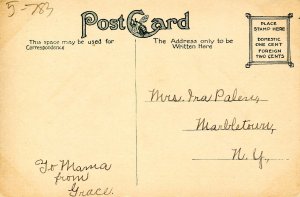 5-783
Post Card
This space may be used for
Correspondence
The Address only to be
Written Here
PLACE
STAMP HERE
DOMESTIC
ONE CENT
FOREIGN
TWO CENTS
Mrs. Ira Paleny,
Marbletown,
N. Y.
To Mama
from
Grace.